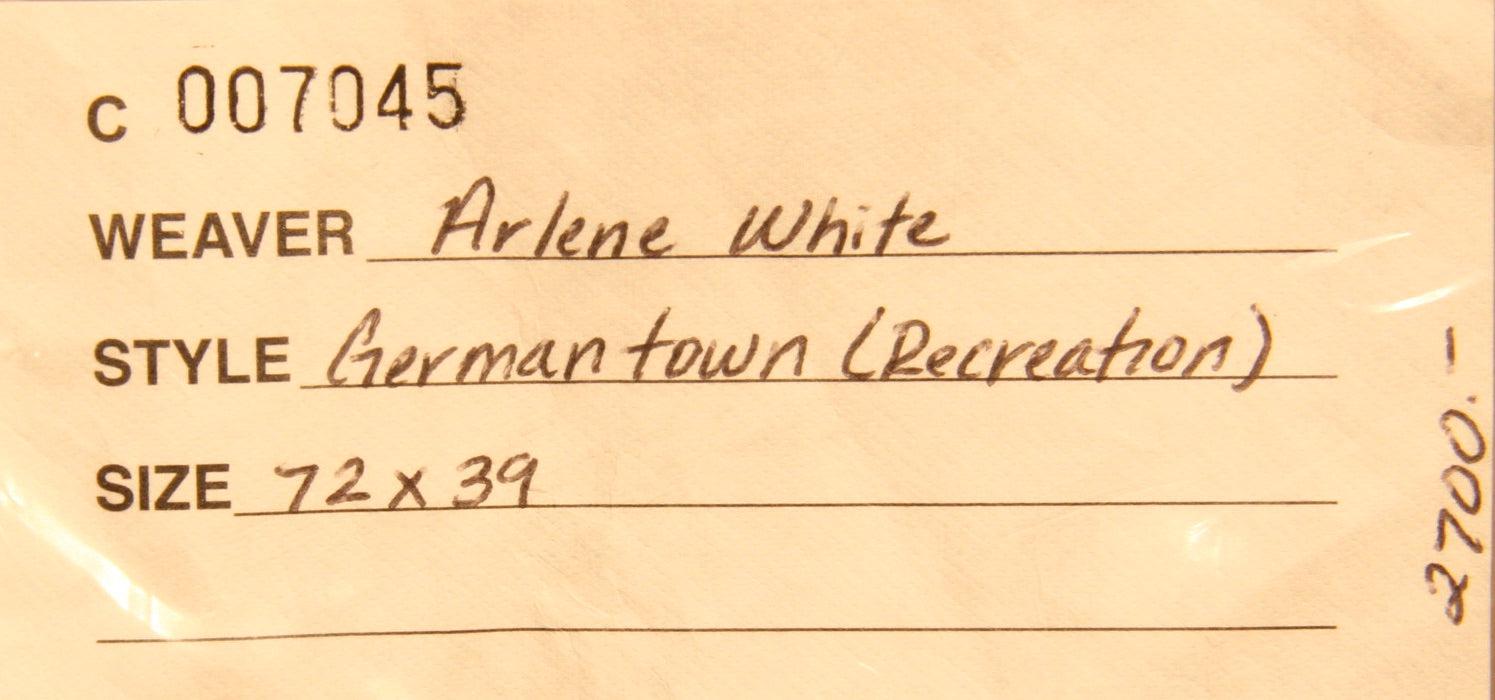 C 007045
WEAVER Arlene White
STYLE Germantown (Recreation)
SIZE 72 x 39
2700.-